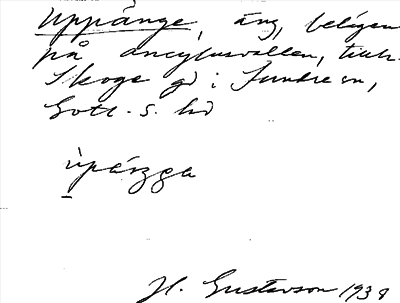 Uppänge, äng, belägen
på ancylusvallen, tillh.
Skoge gd i Sundre sn,
Gotl. s. hd
ùpéŋga
H. Gustavson 1938